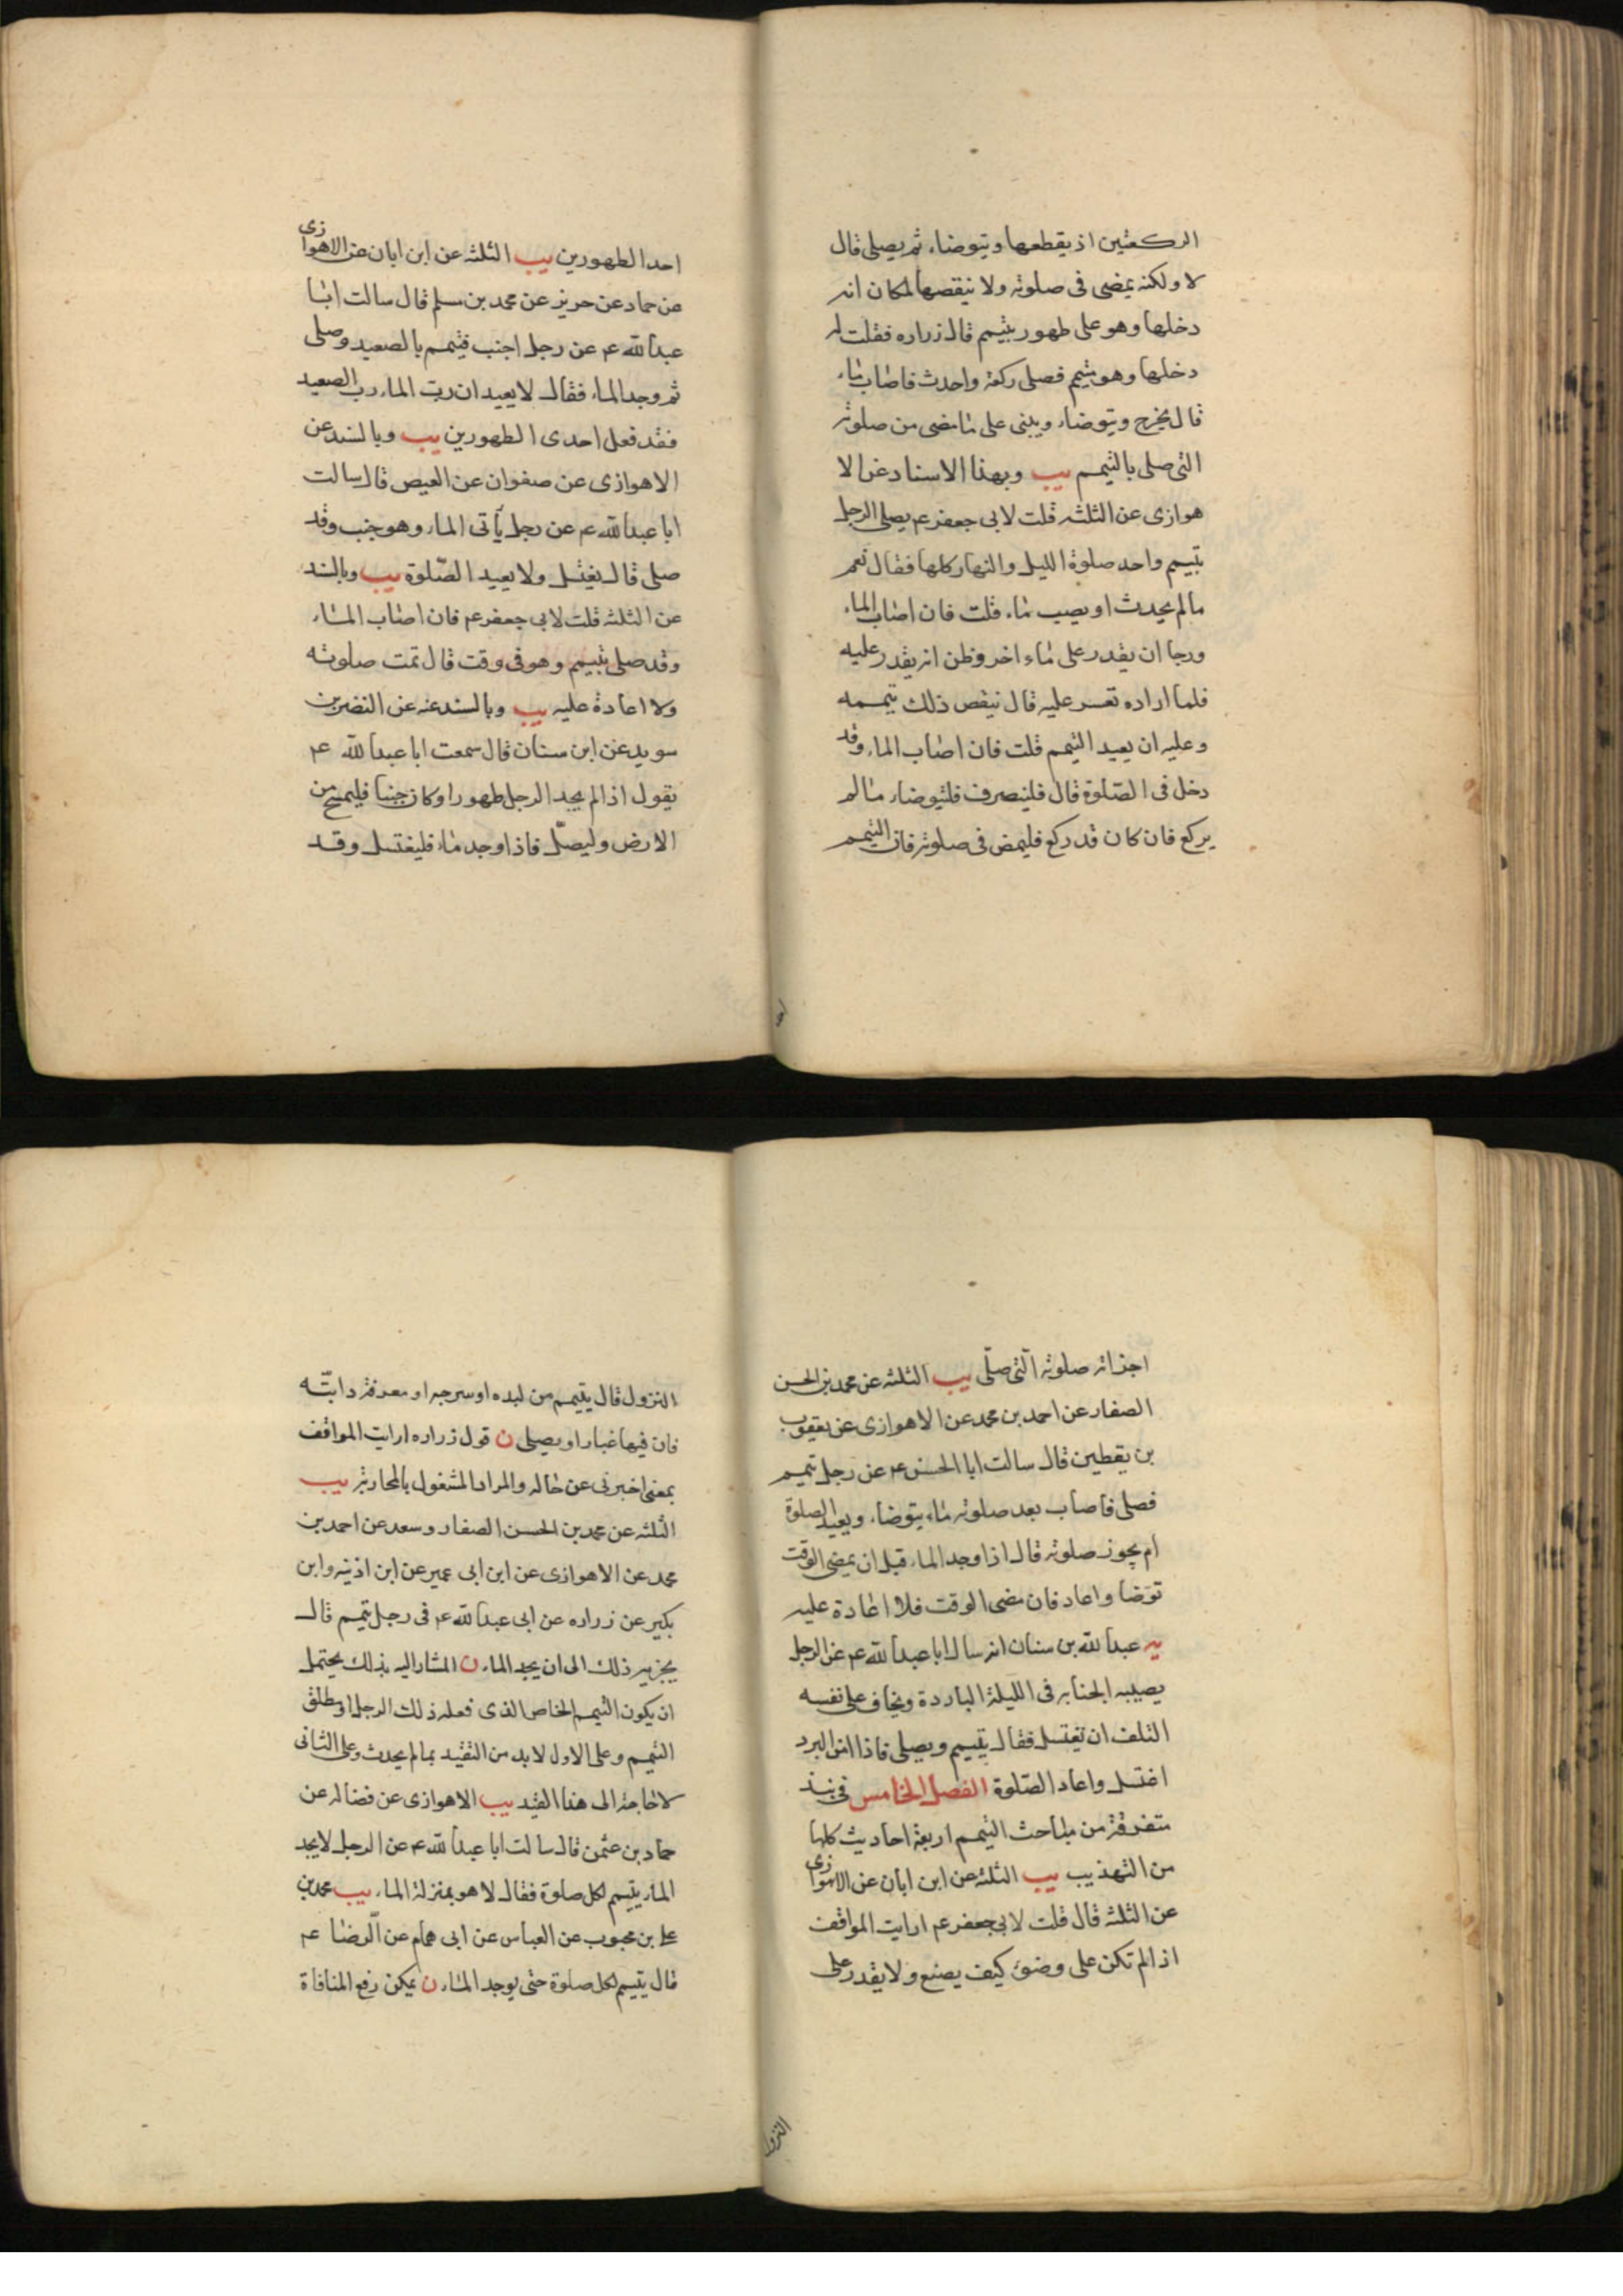 الركعتين اذ يقطعها ويتوضاء ثم يصلى قال
لا ولكنه يمضى فى صلوته ولا ينقضها لمكان انه
دخلها وهو على طهور بتيمم قال زراره فقلت له
دخلها وهو متيمم فصلى ركعة واحدث فاصاب ماء
قال يخرج ويتوضاء ويبنى على ما مضى من صلوته
التى صلى بالتيمم يب وبهذا الاسناد عن الا
هوازى عن الثلثه قلت لابى جعفر عم يصلى الرجل
بتيمم واحد صلوة الليل والنهار كلها فقال نعم
مالم يحدث او يصيب ماء قلت فان اصاب الماء
ورجا ان يقدر على ماء اخر وظن انه يقدر عليه
فلما اراده تعسر عليه قال ينقض ذلك تيممه
وعليه ان يعيد التيمم قلت فان اصاب الماء وقد
دخل فى الصّلوة قال فلينصرف فليتوضاء مالم
يركع فان كان قد ركع فليمض فى صلوته فان التيمم
احد الطهورين يب الثلثه عن ابن ابان عن الاهوازى
عن حماد عن حريز عن محمد بن مسلم قال سالت ابا
عبد الله عم عن رجل اجنب فتيمم بالصعيد وصلى
ثم وجد الماء فقال لا يعيد ان رب الماء رب الصعيد
فقد فعل احدى الطهورين يب وبالسند عن
الاهوازى عن صفوان عن العيص قال سالت
ابا عبد الله عم عن رجل يأتى الماء وهو جنب وقد
صلى قال يغتسل ولا يعيد الصّلوة يب وبالسند
عن الثلثه قلت لابى جعفر عم فان اصاب الماء
وقد صلى بتيمم وهو فى وقت قال تمت صلوته
ولا اعادة عليه يب وبالسند عنه عن النضر بن
سويد عن ابن سنان قال سمعت ابا عبد الله عم
يقول اذا لم يجد الرجل طهورا وكان جنبا فليمسح من
الارض وليصلّ فاذا وجد ماء فليغتسل وقد
اجزاته صلوته الّتى صلّى يب الثلثه عن محمد بن الحسن
الصفار عن احمد بن محمد عن الاهوازى عن يعقوب
بن يقطين قال سالت ابا الحسن عم عن رجل تيمم
فصلى فاصاب بعد صلوته ماء يتوضاء ويعيد الصلوة
ام يجوز صلوته قال اذا وجد الماء قبل ان يمضى الوقت
توضا واعاد فان مضى الوقت فلا اعادة عليه
يه عبد الله بن سنان انه سال ابا عبد الله عم عن الرجل
يصيبه الجنابه فى اللّيلة الباردة ويخاف على نفسه
التلف ان يغتسل فقال يتيمم ويصلى فاذا امن البرد
اغتسل واعاد الصّلوة الفصل الخامس فى نبذ
متفرقة من مباحث التيمم اربعة احاديث كلها
من التهذيب يب الثلثه عن ابن ابان عن الاهوازى
عن الثلثه قال قلت لابى جعفر عم ارايت المواقف
اذا لم تكن على وضوء كيف يصنع ولا يقدر على
النزول
النزول قال يتيمم من لبده او سرجه او معرفة دابّته
فان فيها غبارا ويصلى ن قول زراره ارايت المواقف
بمعنى اخبرنى عن حاله والمراد المشغول بالمحاربة يب
الثلثه عن محمد بن الحسن الصفار وسعد عن احمد بن
محمد عن الاهوازى عن ابن ابى عمير عن ابن اذينه وابن
بكير عن زراره عن ابى عبد الله عم فى رجل تيمم قال
يجزيه ذلك الى ان يجد الماء ن المشار اليه بذلك يحتمل
ان يكون التيمم الخاص الذى فعله ذلك الرجل او مطلق
التيمم وعلى الاول لا بد من التقييد بمالم يحدث وعلى الثانى
لا حاجة الى هذا القيد يب الاهوازى عن فضاله عن
حماد بن عثمن قال سالت ابا عبد الله عم عن الرجل لا يجد
الماء يتيمم لكل صلوة فقال لا هو بمنزلة الماء يب محمد بن
على بن محبوب عن العباس عن ابى همام عن الرّضا عم
قال يتيمم لكل صلوة حتى يوجد الماء ن يمكن رفع المنافاة